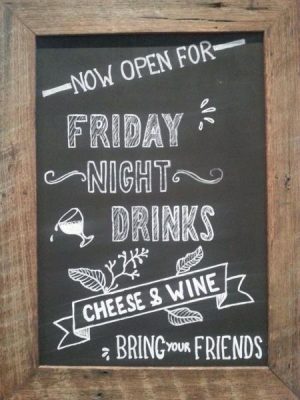 NOW OPEN FOR
FRIDAY
NIGHT
DRINKS
CHEESE & WINE
BRING YOUR FRIENDS